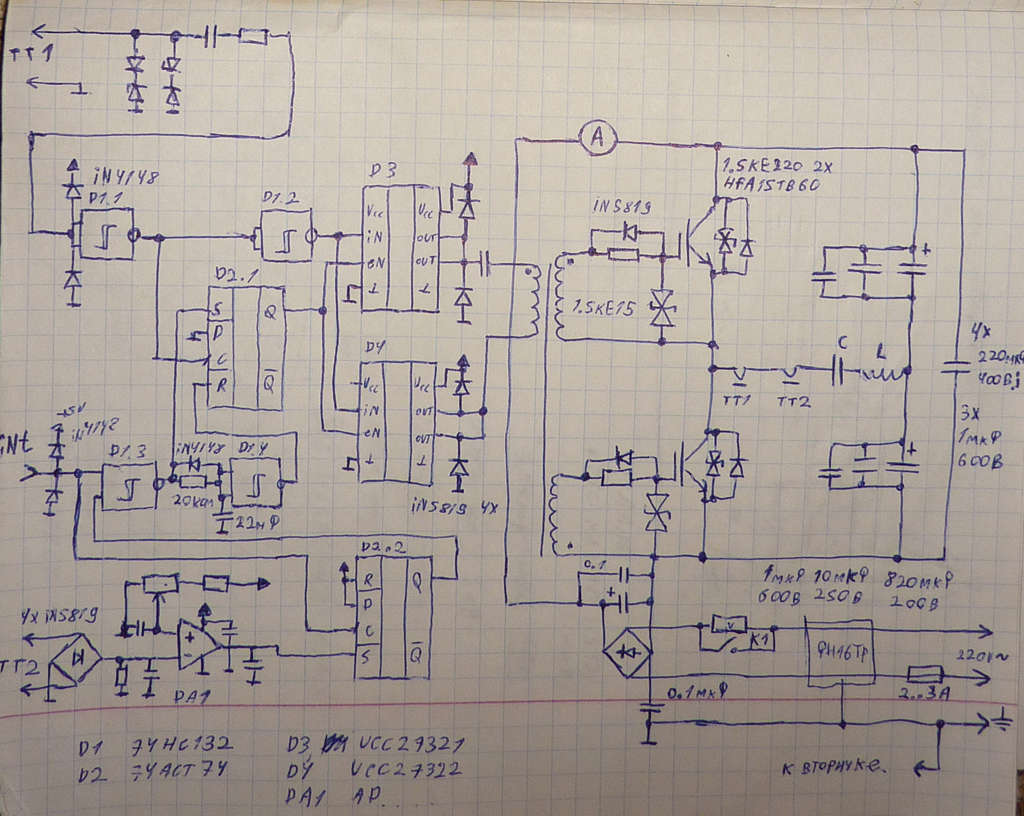 TT1
iN4148
D1.1
D1.2
D3
Vcc
Vcc
iN
OUT
eN
OUT
⊥
⊥
D2.1
S
D
C
R
Q
Q̅
D4
Vcc
Vcc
iN
OUT
eN
OUT
⊥
⊥
iN5819 4x
A
iN5819
1.5KE15
1.5KE220 2x
HFA15TB60
+
C
L
TT1
TT2
4x
220мкФ
400В
3x
1мкФ
600В
+
iNt
+5V
iN4148
D1.3
iN4148
D1.4
20кОм
22нФ
D2.2
R
D
C
S
Q
Q̅
4x iN5819
TT2
+
-
DA1
0.1
+
1мкФ 10мкФ 820мкФ
600В 250В 200В
K1
ФН16ТР
220V~
2..3A
0.1мкФ
к вторичке.
D1 74HC132
D2 74ACT74
D3, UCC27321
D4 UCC27322
DA1 AD.....